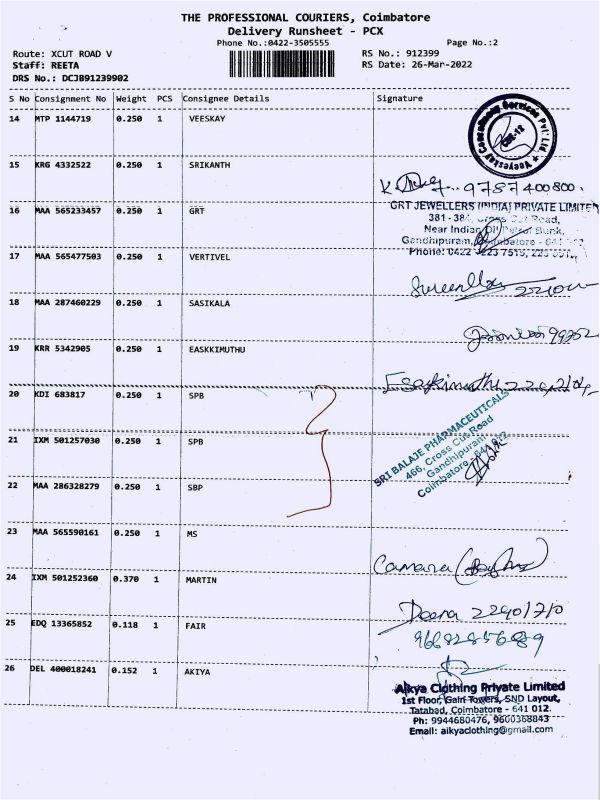 THE PROFESSIONAL COURIERS, Coimbatore
Delivery Runsheet - PCX
Phone No.:0422-3505555
Page No.:2
Route: XCUT ROAD V
RS No.: 912399
Staff: REETA
RS Date: 26-Mar-2022
DRS No.: DCJB91239902
S No Consignment No Weight PCS Consignee Details Signature
14 MTP 1144719 0.250 1 VEESKAY
15 KRG 4332522 0.250 1 SRIKANTH
9787400800.
16 MAA 565233457 0.250 1 GRT
GRT JEWELLERS (INDIA) PRIVATE LIMITED
381 - 384, Cross Cut Road,
Near Indian Oil Petrol Bunk,
Gandhipuram, Coimbatore - 641
Phone: 0422
17 MAA 565477503 0.250 1 VERTIVEL
18 MAA 287460229 0.250 1 SASIKALA
19 KRR 5342905 0.250 1 EASKKIMUTHU
Esaykimuthu
20 KDI 683817 0.250 1 SPB
SRI BALAJE PHARMACEUTICALS
466, Cross Cut Road
Gandhipuram
Coimbatore
21 IXM 501257030 0.250 1 SPB
22 MAA 286328279 0.250 1 SBP
23 MAA 565590161 0.250 1 MS
Camara
24 IXM 501252360 0.370 1 MARTIN
25 EDQ 13365852 0.118 1 FAIR
26 DEL 400018241 0.152 1 AKIYA
Aikya Clothing Private Limited
1st Floor, Gairi Towers, SND Layout,
Tatabad, Coimbatore - 641 012.
Ph: 9944680476, 9600368843
Email: aikyaclothing@gmail.com